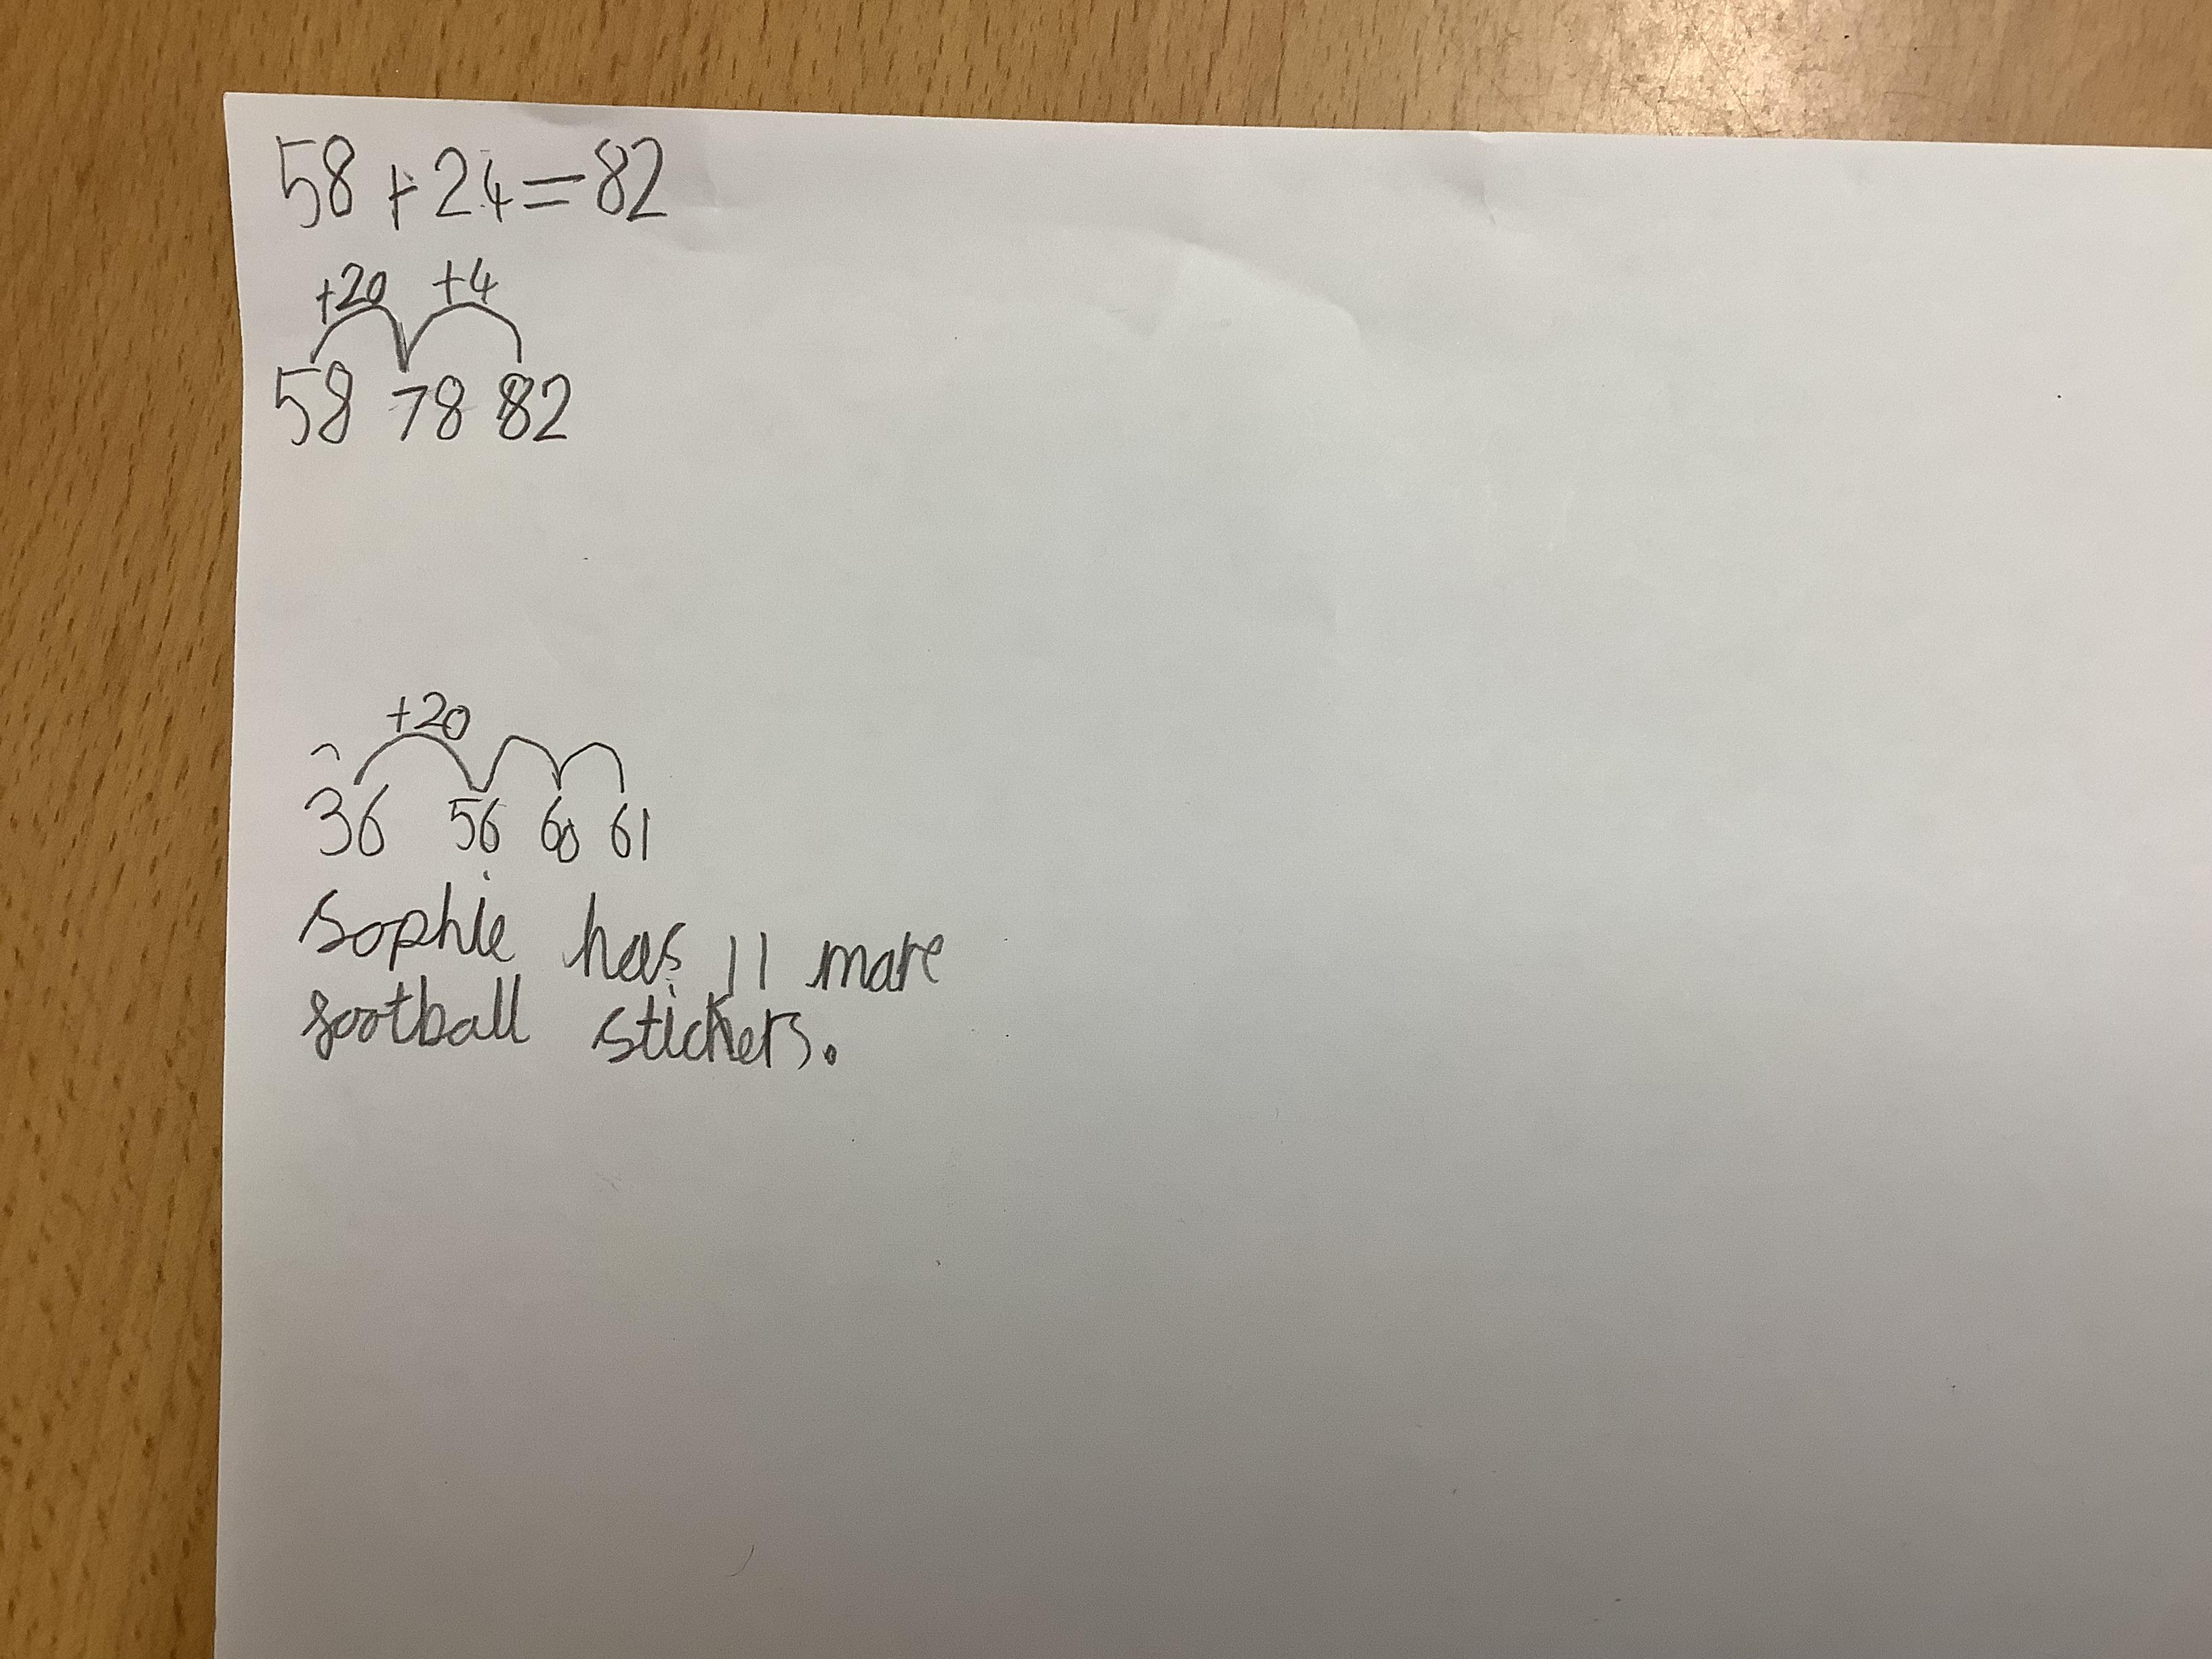 58 + 24 = 82
+20 +4
58 78 82
+20
36 56 60 61
Sophie has 11 more
football stickers.